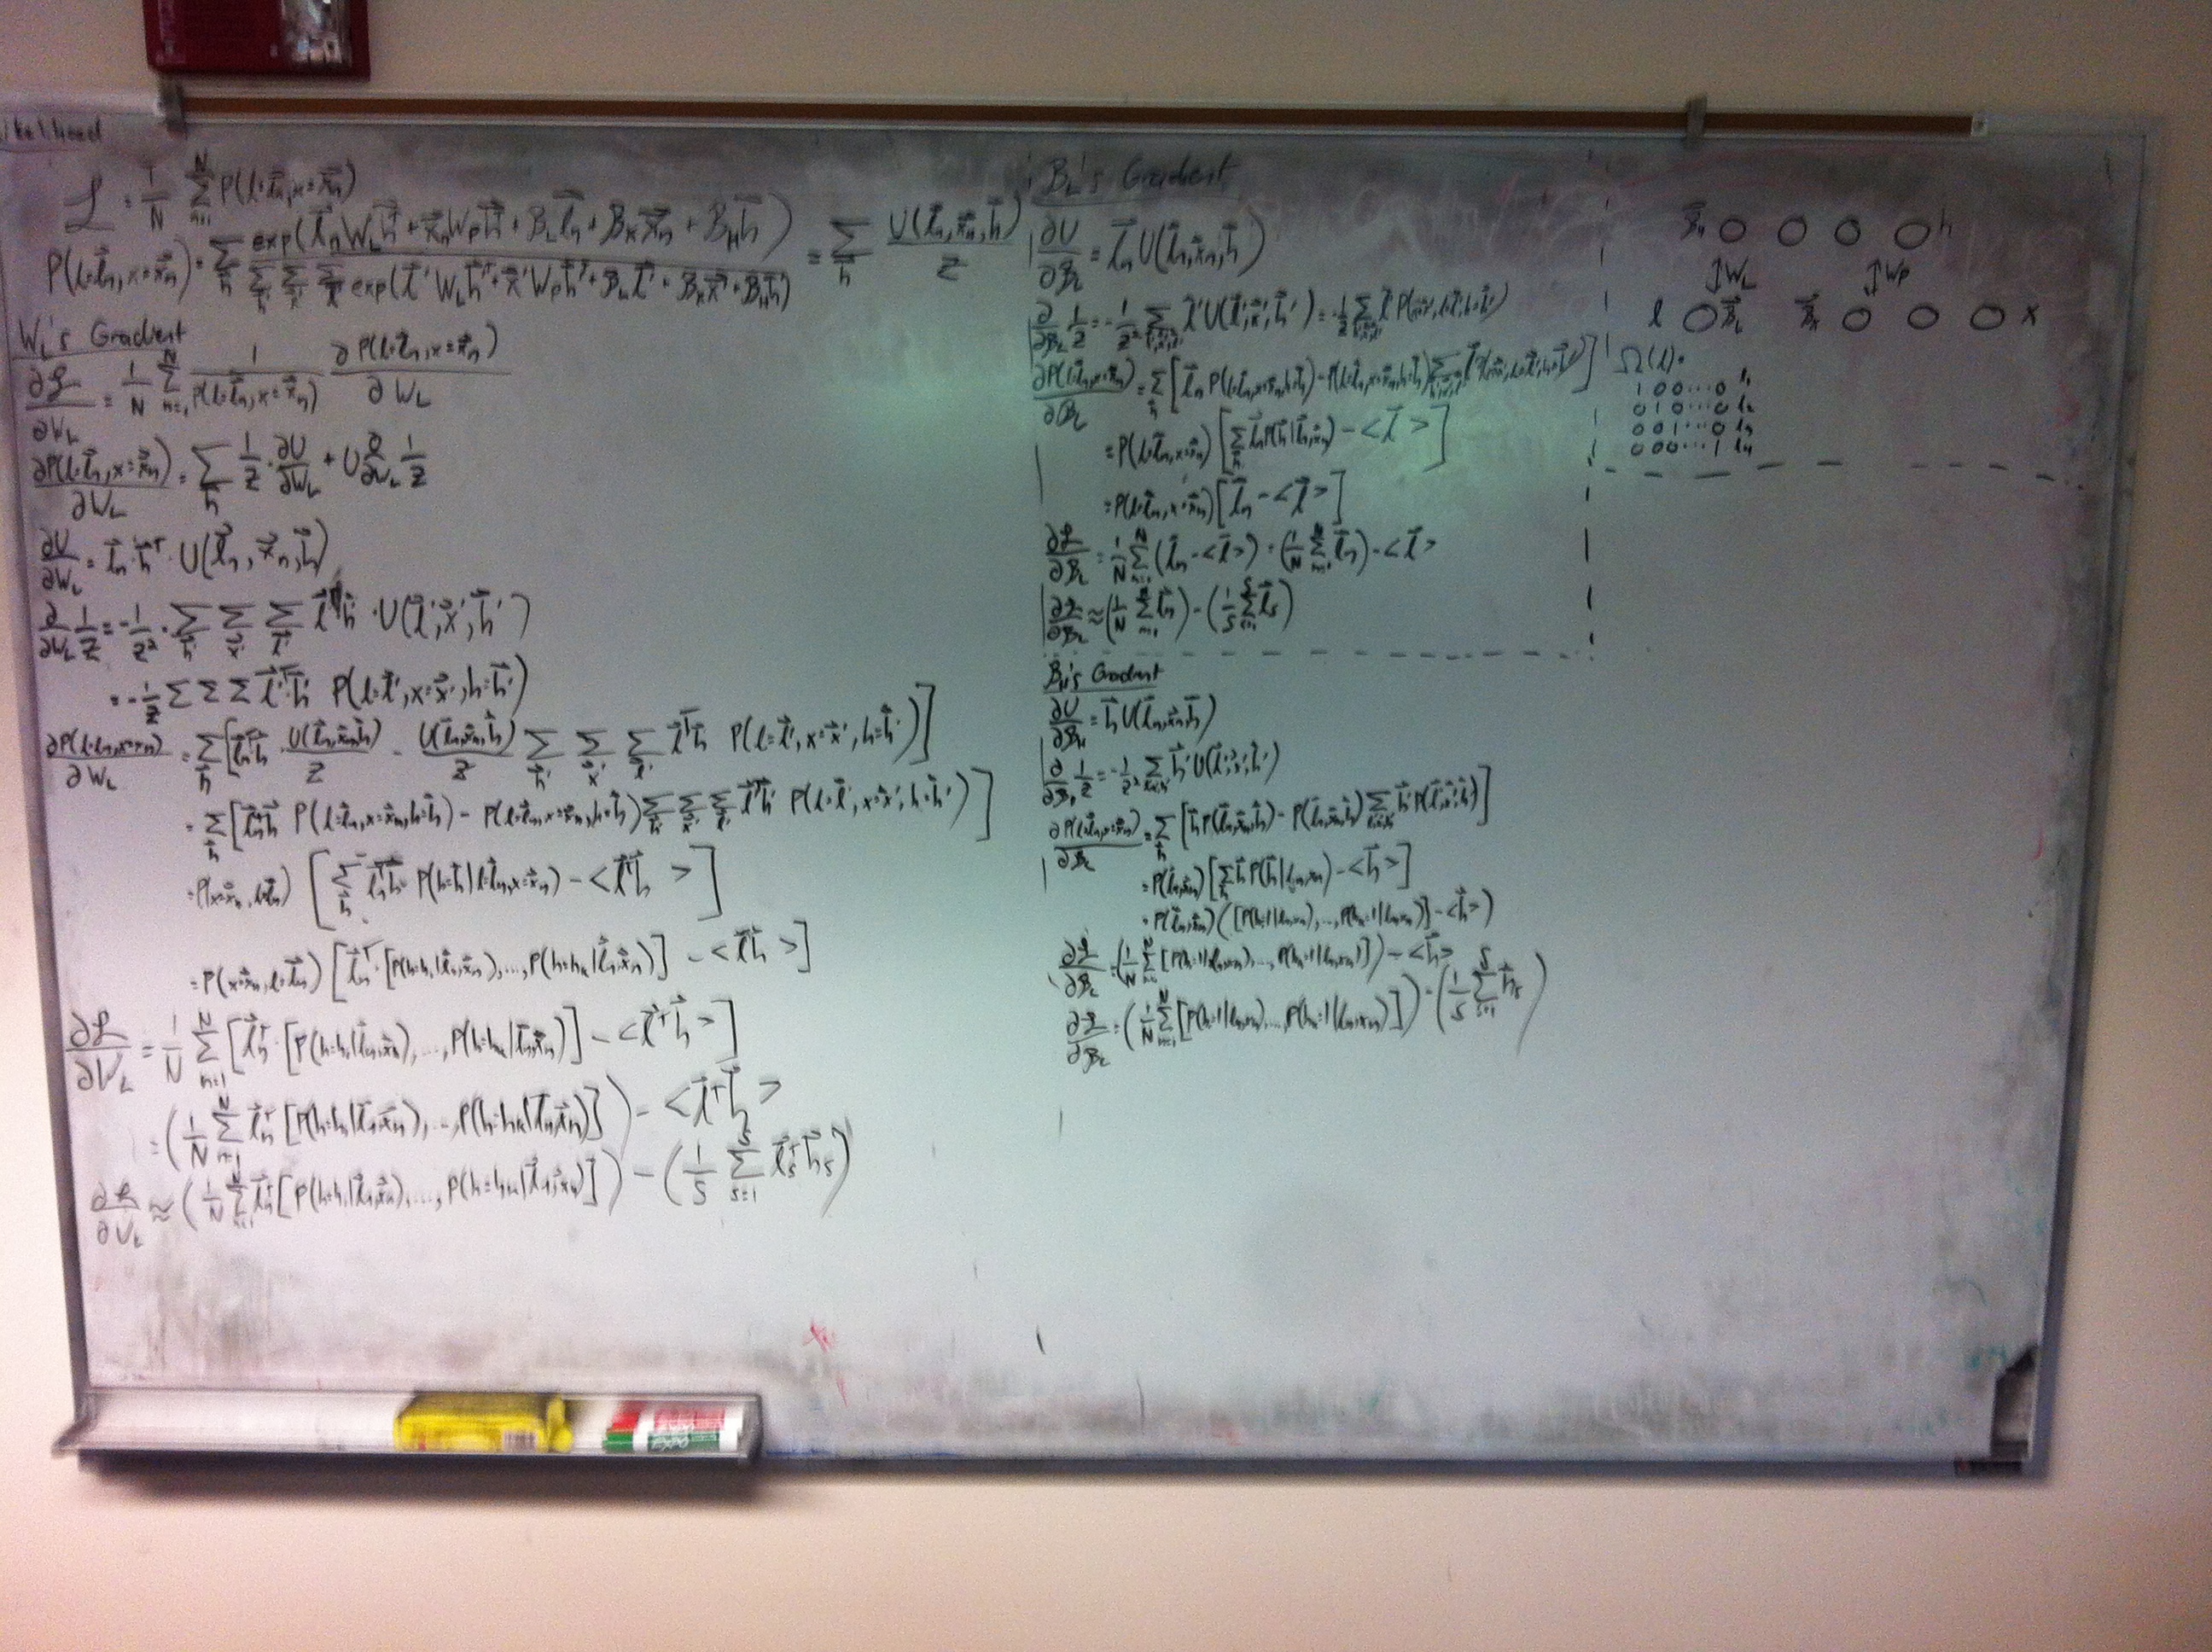 ikelihood
ℒ = 1/N Σ_{n=1}^{N} P(l=l⃗ₙ, x=x⃗ₙ)
P(l=l⃗ₙ, x=x⃗ₙ) = Σ_h⃗ exp(l⃗ₙW_L h⃗ᵀ + x⃗ₙW_P h⃗ᵀ + B_L l⃗ₙ + B_X x⃗ₙ + B_H h⃗) / Σ_h⃗' Σ_x⃗' Σ_l⃗' exp(l⃗'W_L h⃗'ᵀ + x⃗'W_P h⃗'ᵀ + B_L l⃗' + B_X x⃗' + B_H h⃗') = Σ_h⃗ U(l⃗ₙ, x⃗ₙ, h⃗) / Z
W_L's Gradient
∂ℒ/∂W_L = 1/N Σ_{n=1}^{N} 1/P(l=l⃗ₙ, x=x⃗ₙ) ∂P(l=l⃗ₙ, x=x⃗ₙ)/∂W_L
∂P(l=l⃗ₙ, x=x⃗ₙ)/∂W_L = Σ_h⃗ 1/Z · ∂U/∂W_L + U ∂/∂W_L 1/Z
∂U/∂W_L = l⃗ₙ · h⃗ᵀ · U(l⃗ₙ, x⃗ₙ, h⃗)
∂/∂W_L 1/Z = -1/Z² · Σ_h⃗' Σ_x⃗' Σ_l⃗' l⃗'ᵀh⃗' · U(l⃗', x⃗', h⃗')
= -1/Z Σ Σ Σ l⃗'ᵀh⃗' P(l=l⃗', x=x⃗', h=h⃗')
∂P(l=lₙ, x=xₙ)/∂W_L = Σ_h⃗ [l⃗ₙᵀh⃗ · U(l⃗ₙ, x⃗ₙ, h⃗)/Z - U(l⃗ₙ, x⃗ₙ, h⃗)/Z Σ_h⃗' Σ_x⃗' Σ_l⃗' l⃗'ᵀh⃗ P(l=l⃗', x=x⃗', h=h⃗')]
= Σ_h⃗ [l⃗ₙᵀh⃗ P(l=l⃗ₙ, x=x⃗ₙ, h=h⃗) - P(l=l⃗ₙ, x=x⃗ₙ, h=h⃗) Σ_h⃗' Σ_x⃗' Σ_l⃗' l⃗'ᵀh⃗' P(l=l⃗', x=x⃗', h=h⃗')]
= P(x=x⃗ₙ, l=l⃗ₙ) [Σ_h⃗ l⃗ₙᵀh⃗ P(h=h⃗|l=l⃗ₙ, x=x⃗ₙ) - <l⃗ᵀh⃗>]
= P(x=x⃗ₙ, l=l⃗ₙ) [l⃗ₙᵀ · [P(h=h₁|l⃗ₙ, x⃗ₙ), ..., P(h=hₖ|l⃗ₙ, x⃗ₙ)] - <l⃗h⃗>]
∂ℒ/∂W_L = 1/N Σ_{n=1}^{N} [l⃗ₙᵀ · [P(h=h₁|l⃗ₙ, x⃗ₙ), ..., P(h=hₖ|l⃗ₙ, x⃗ₙ)] - <l⃗ᵀh⃗>]
= (1/N Σ_{n=1}^{N} l⃗ₙᵀ [P(h=h₁|l⃗ₙ, x⃗ₙ), ..., P(h=hₖ|l⃗ₙ, x⃗ₙ)]) - <l⃗ᵀh⃗>
∂ℒ/∂W_L ≈ (1/N Σ_{n=1}^{N} l⃗ₙᵀ [P(h=h₁|l⃗ₙ, x⃗ₙ), ..., P(h=hₖ|l⃗ₙ, x⃗ₙ)]) - (1/S Σ_{s=1}^{S} l⃗ₛᵀh⃗ₛ)
B_L's Gradient
∂U/∂B_L = l⃗ₙ U(l⃗ₙ, x⃗ₙ, h⃗)
∂/∂B_L 1/Z = -1/Z² Σ_{h⃗',x⃗',l⃗'} l⃗' U(l⃗', x⃗', h⃗') = -1/Z Σ_{h⃗',x⃗',l⃗'} l⃗' P(x=x⃗', l=l⃗', h=h⃗')
∂P(l=l⃗ₙ, x=x⃗ₙ)/∂B_L = Σ_h⃗ [l⃗ₙ P(l=l⃗ₙ, x=x⃗ₙ, h=h⃗) - P(l=l⃗ₙ, x=x⃗ₙ, h=h⃗) Σ_{h⃗',x⃗',l⃗'} l⃗' P(x=x⃗', l=l⃗', h=h⃗')]
= P(l=l⃗ₙ, x=x⃗ₙ) [Σ_h⃗ l⃗ₙ P(h⃗|l⃗ₙ, x⃗ₙ) - <l⃗>]
= P(l=l⃗ₙ, x=x⃗ₙ) [l⃗ₙ - <l⃗>]
∂ℒ/∂B_L = 1/N Σ_{n=1}^{N} (l⃗ₙ - <l⃗>) = (1/N Σ_{n=1}^{N} l⃗ₙ) - <l⃗>
∂ℒ/∂B_L ≈ (1/N Σ_{n=1}^{N} l⃗ₙ) - (1/S Σ_{s=1}^{S} l⃗ₛ)
B_H's Gradient
∂U/∂B_H = h⃗ U(l⃗ₙ, x⃗ₙ, h⃗)
∂/∂B_H 1/Z = -1/Z² Σ_{l⃗',x⃗',h⃗'} h⃗' U(l⃗', x⃗', h⃗')
∂P(l=l⃗ₙ, x=x⃗ₙ)/∂B_L = Σ_h⃗ [h⃗ P(l⃗ₙ, x⃗ₙ, h⃗) - P(l⃗ₙ, x⃗ₙ, h⃗) Σ_{l⃗',x⃗',h⃗'} h⃗' P(l⃗', x⃗', h⃗')]
= P(l⃗ₙ, x⃗ₙ) [Σ_h⃗ h⃗ P(h⃗|lₙ, xₙ) - <h⃗>]
= P(l⃗ₙ, x⃗ₙ) ([P(h₁=1|lₙ, xₙ), ..., P(hₖ=1|lₙ, xₙ)] - <h⃗>)
∂ℒ/∂B_L = (1/N Σ_{n=1}^{N} [P(h₁=1|lₙ, xₙ), ..., P(hₖ=1|lₙ, xₙ)]) - <h⃗>
∂ℒ/∂B_L = (1/N Σ_{n=1}^{N} [P(h₁=1|lₙ, xₙ), ..., P(hₖ=1|lₙ, xₙ)]) - (1/S Σ_{s=1}^{S} h⃗ₛ)
B⃗_H h
↕W_L ↕W_P
l B⃗_L B⃗_X x
Ω(l)=
1 0 0 ... 0 l₁
0 1 0 ... 0 l₂
0 0 1 ... 0 l₃
0 0 0 ... 1 l₄
EXPO